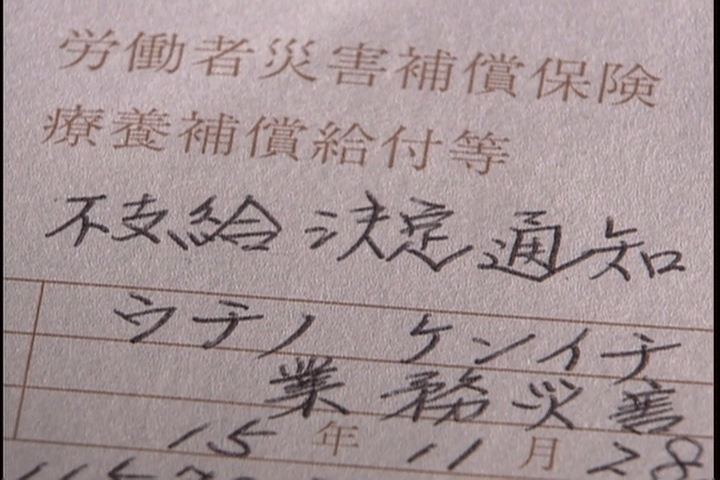 労働者災害補償保険
療養補償給付等
不支給決定通知
ウチノ ケンイチ
業務災害
15年11月28